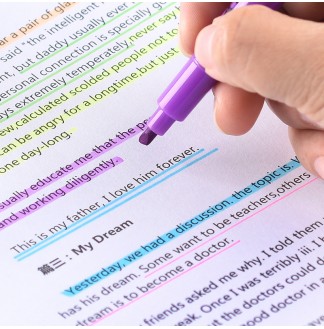 or a pair of gla
said "the intelligent
t, but daddy usually ever
personal connection is specially g
ays extremely temperately, never
ew, calculated scolded people not to
can be angry for a longtime, but just
one day-long.
sually educate me that the pe
and working diligently.
This is my father, I love him forever.
篇三: My Dream
Yesterday, we had a discussion. the topic is. 1
has his dream. Some want to be teachers, others
dream is to become a doctor.
friends asked me why. I told them
eak. Once I was terribly ill. I
ut the doctors could
d